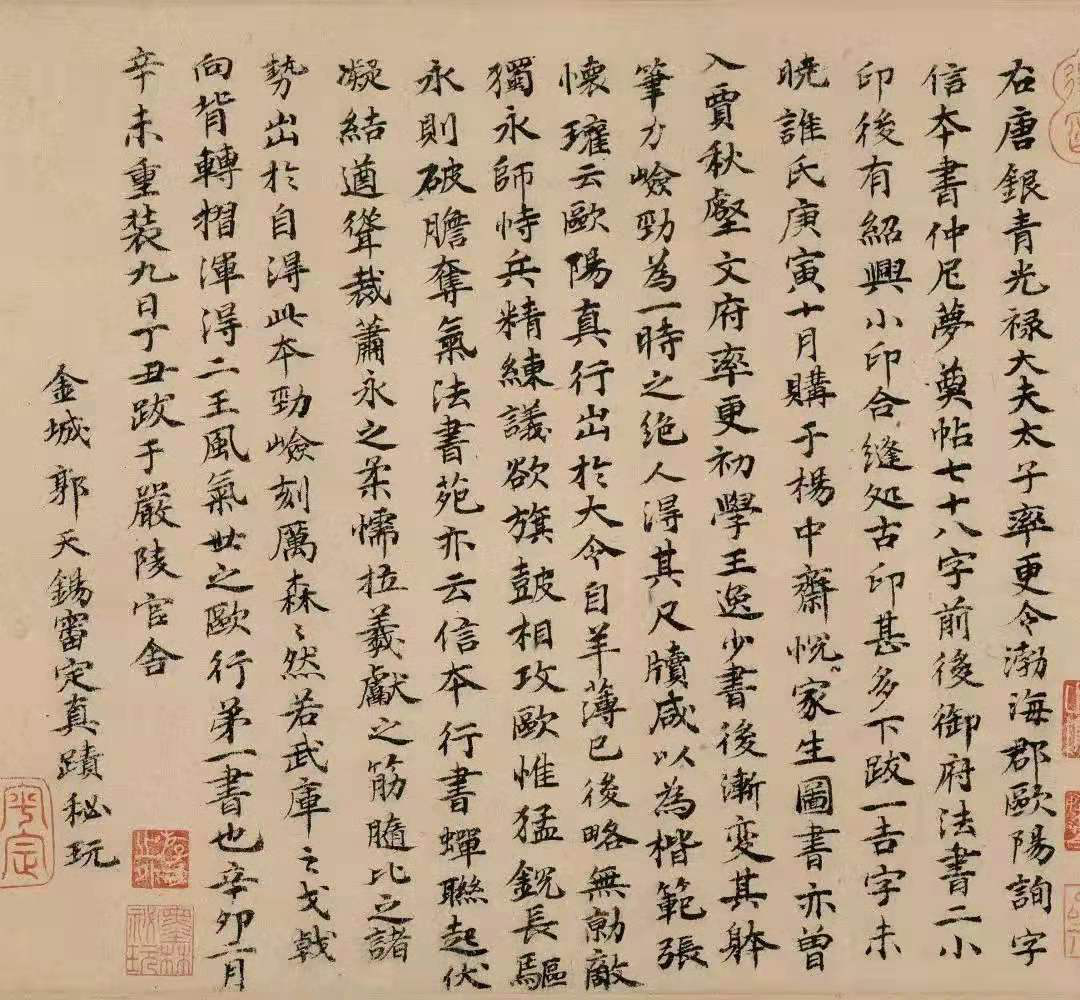 右唐銀青光禄大夫太子率更令渤海郡歐陽詢字
信本書仲尼夢奠帖七十八字前後御府法書二小
印後有紹興小印合縫処古印甚多下跋一吉字未
曉誰氏庚寅十月購于楊中齋悦家生圖書亦曾
入賈秋壑文府率更初學王逸少書後漸変其躰
筆力嶮勁為一時之絶人得其尺牘咸以為楷範張
懐瓘云歐陽真行出於大令自羊薄已後略無勍敵
獨永師恃兵精練議欲旗鼓相攻歐惟猛鋭長驅
永則破膽奪氣法書苑亦云信本行書蟬聯起伏
凝結遒聳裁蕭永之柔懦拉羲獻之筋髄比之諸
勢出於自得此本勁嶮刻厲森〻然若武庫之戈戟
向背轉摺渾得二王風氣世之歐行第一書也辛卯二月
辛未重装九日丁丑跋于嚴陵官舎
金城郭天錫審定真蹟秘玩
平定